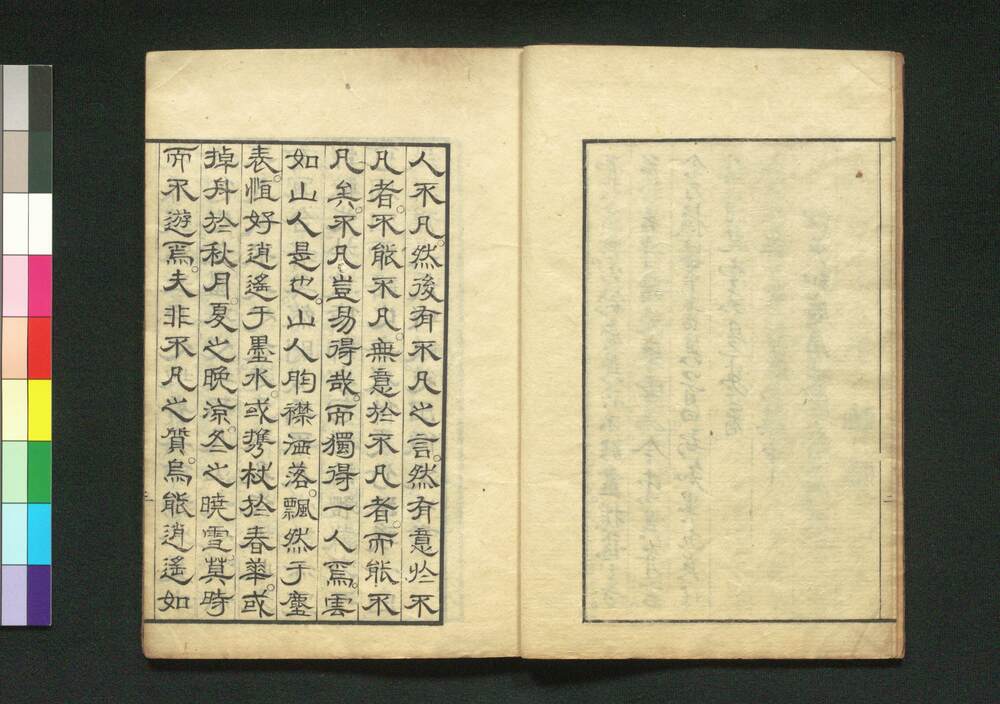 人不凡。然後有不凡之言。然有意於不
凡者。不能不凡。無意於不凡者。而能不
凡矣。不凡豈易得哉。而獨得一人焉。雲
如山人是也。山人胸襟洒落。飄然于塵
表。恒好逍遙于墨水。或攜杖於春華。或
掉舟於秋月。夏之晩涼。冬之曉雪。莫時
而不遊焉。夫非不凡之質。烏能逍遙如
二
三